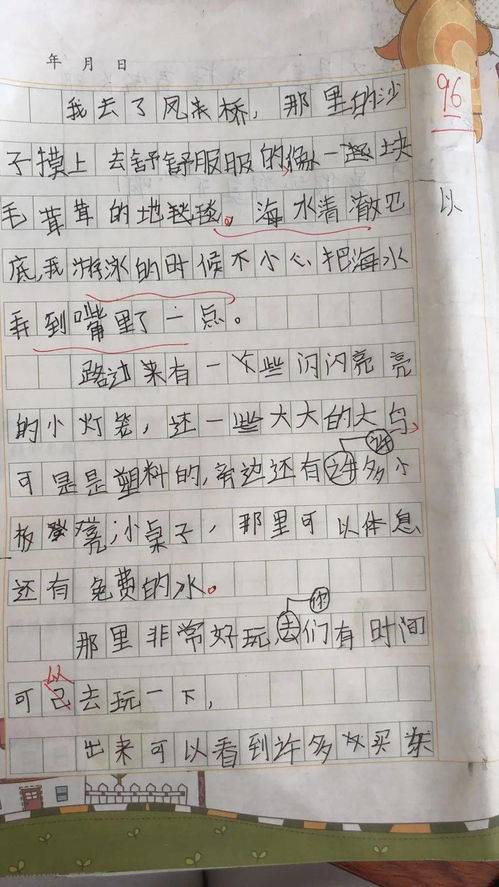 年 月 日
96
我去了风来桥，那里的沙
子摸上去舒舒服服的像一块
毛茸茸的地毯。海水清澈见
以
底，我游泳的时候不小心把海水
弄到嘴里了一点。
路过来有一些闪闪亮亮
的小灯笼，还一些大大的大鸟
许
可是是塑料的，旁边还有许多小
板凳小桌子，那里可以体息
还有免费的水。
你
那里非常好玩去们有时间
以
可己去玩一下，
出来可以看到许多买东